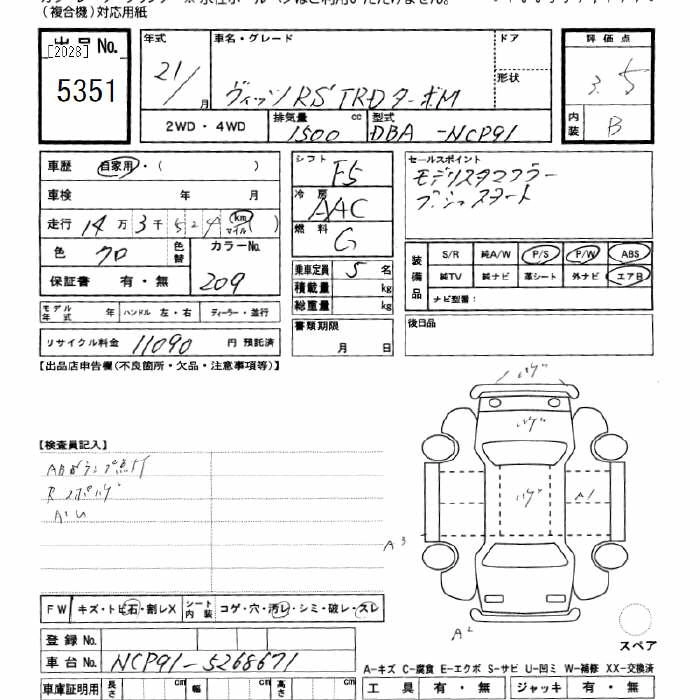 （複合機）対応用紙
出品No.
[2028]
5351
年式
21/
月
車名・グレード
ヴィッツRS TRDターボM
ドア
形状
2WD・4WD
排気量
1500
cc
型式
DBA -NCP91
評価点
3.5
内装
B
車歴 自家用・( )
車検 年 月
走行 14万 3千 524 km マイル ( )
色 クロ 色替
カラーNo.
209
保証書 有・無
モデル年式 年 ハンドル 左・右 ディーラー・並行
リサイクル料金 11090 円 預託済
シフト
F5
冷房
AAC
燃料
G
乗車定員 5 名
積載量 kg
総重量 kg
書類期限
月 日
セールスポイント
モデリスタマフラー
プッシュスタート
装備品
S/R 純A/W P/S P/W ABS
純TV 純ナビ 革シート 外ナビ エアB
ナビ型番：
後日品
【出品店申告欄(不良箇所・欠品・注意事項等)】
【検査員記入】
ABSランプ点灯
A1
A3
A2
FW キズ・トビ石・割レX
シート内装 コゲ・穴・汚レ・シミ・破レ・スレ
登録No.
車台No. NCP91-5268671
車庫証明用 長さ cm 幅 cm 高さ cm
スペア
A−キズ C−腐食 E−エクボ S−サビ U−凹ミ W−補修 XX−交換済
工具 有・無 ジャッキ 有・無